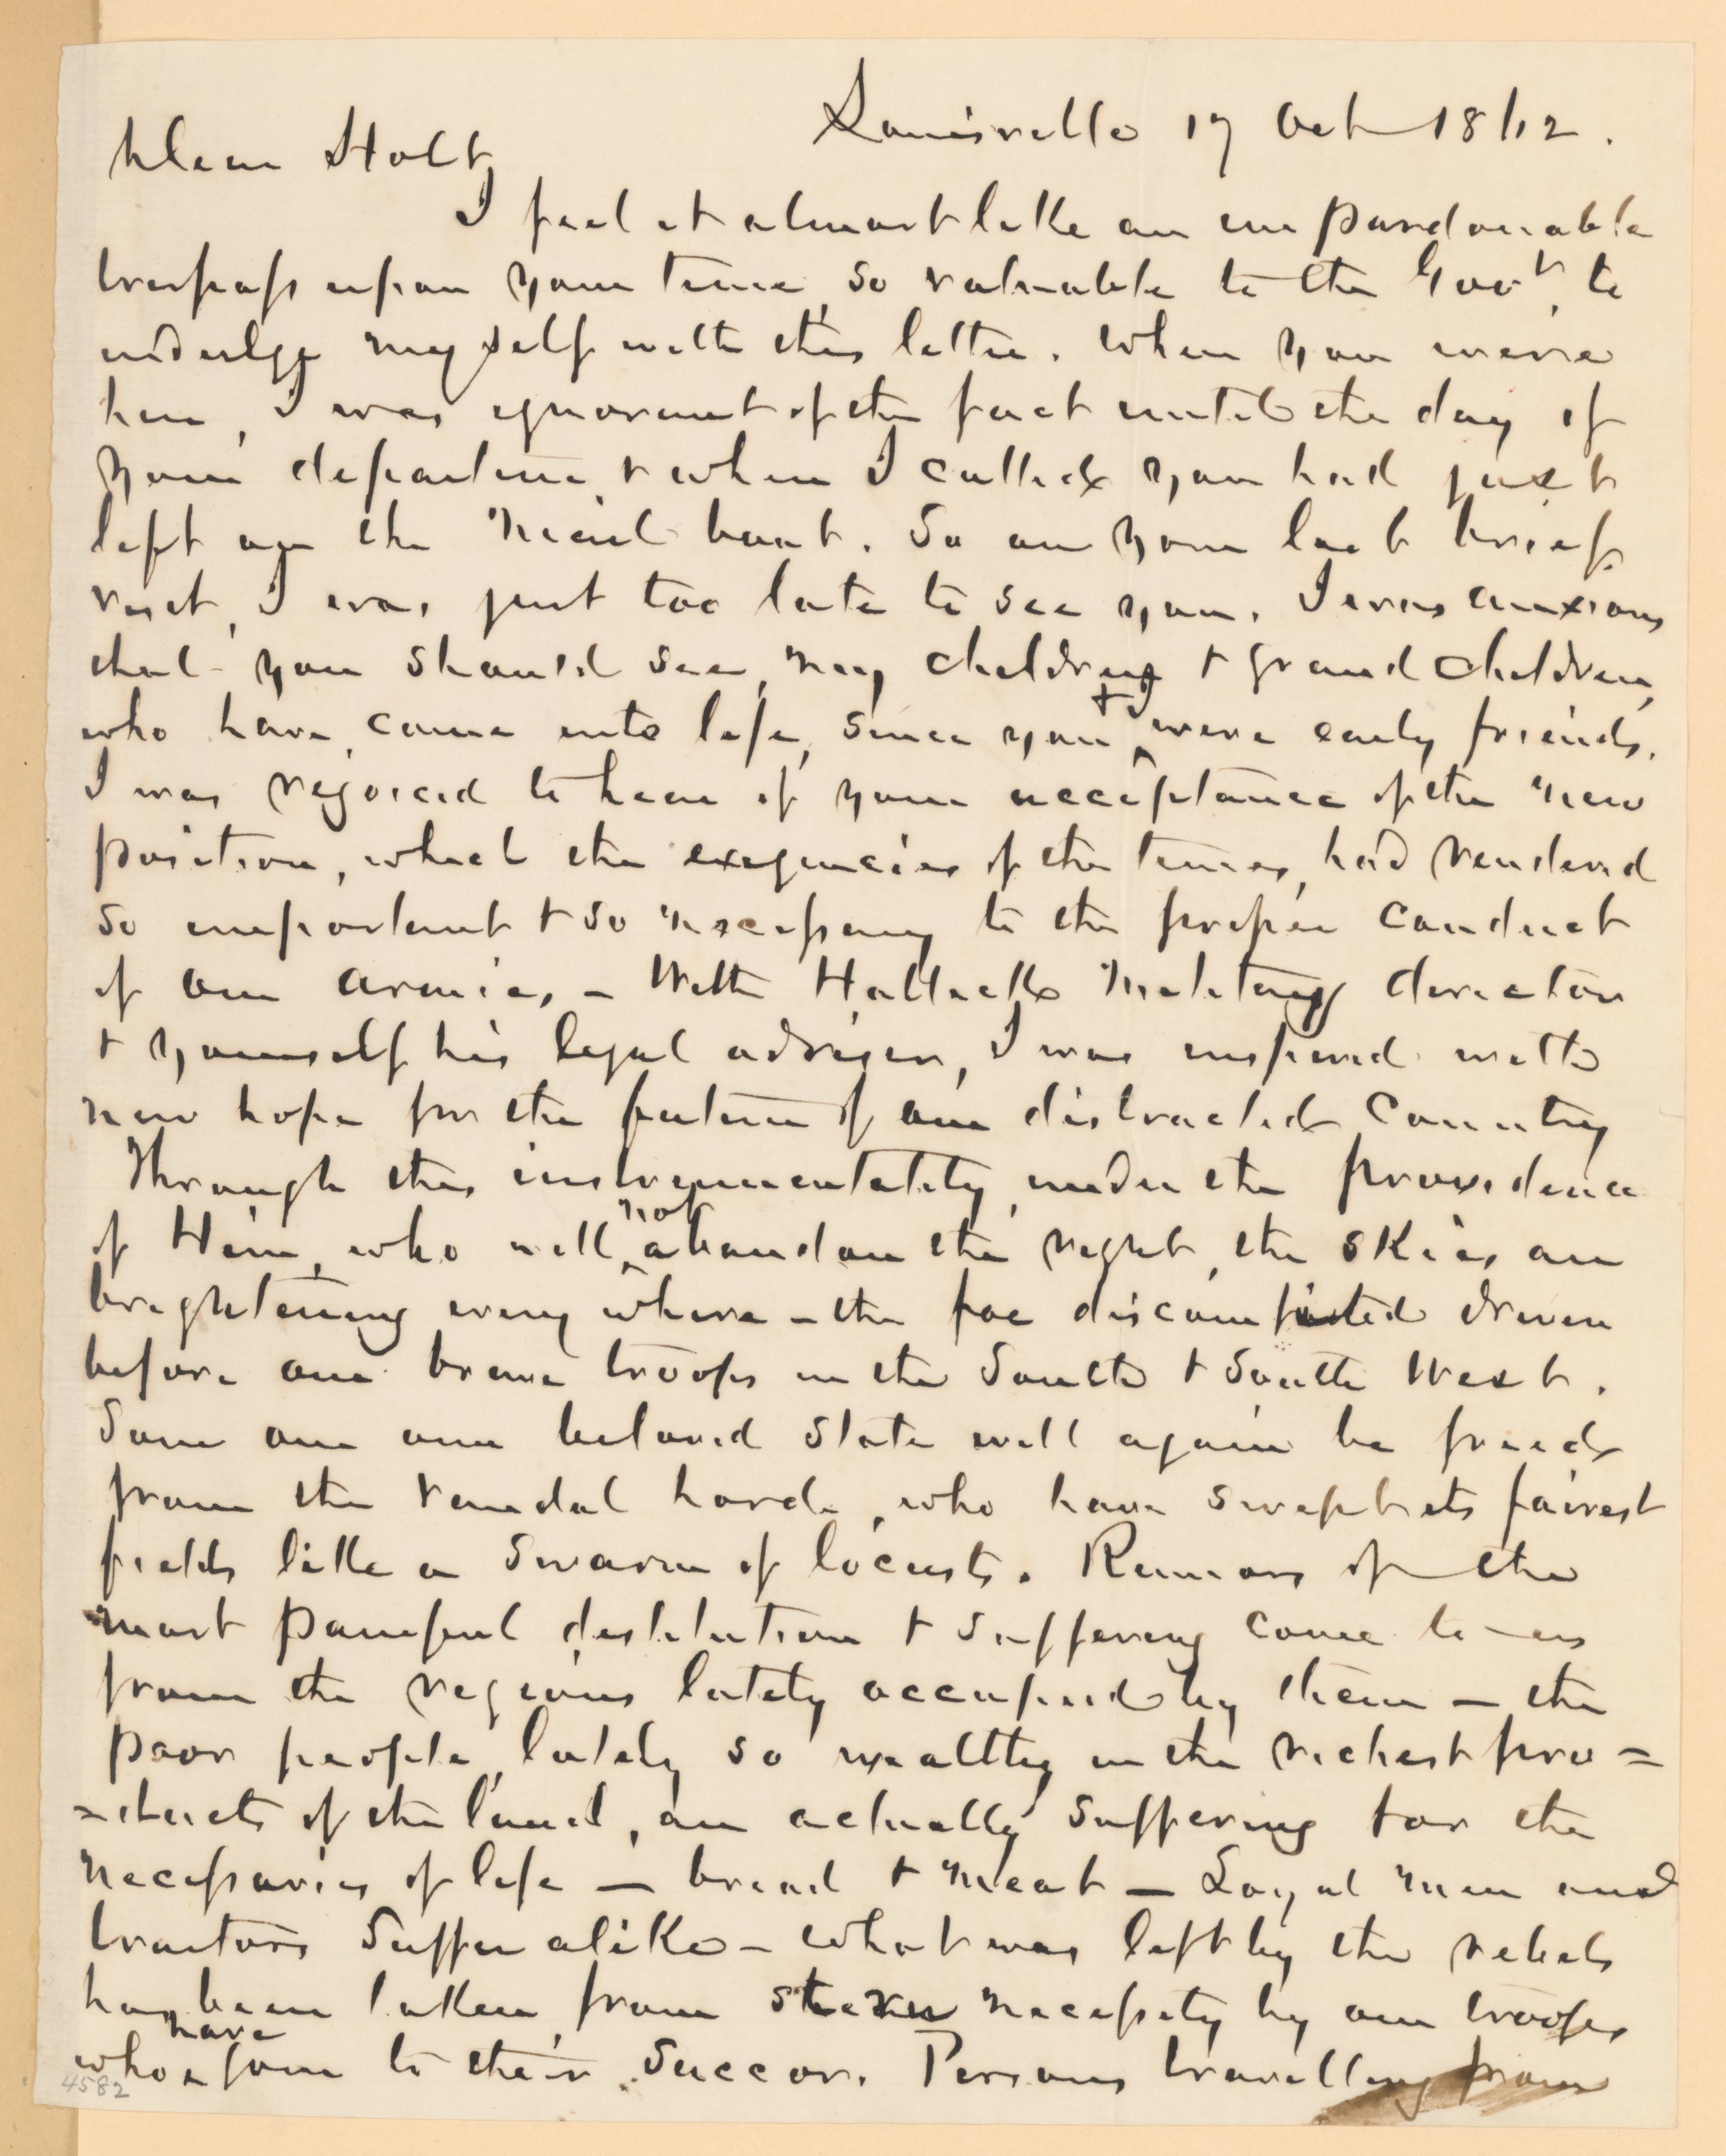 Louisville 17 Oct 1862.
Dear Holt,
I feel it almost like an unpardonable
trespass upon your time, so valuable to the Govt, to
indulge myself with this letter. When you were
here, I was ignorant of the fact until the day of
your departure, & when I called you had just
left on the mail boat. So on your last brief
visit, I was just too late to see you. I was anxious
that you should see, my children & grand children,
who have, come into life, since you & I were early friends.
I was rejoiced to hear of your acceptance of the new
position, which the exigencies of the times, had rendered
so important & so necessary to the proper conduct
of our armies, - With Halleck military director
& yourself his legal adviser, I was inspired with
new hope for the future of our distracted Country
Through this instrumentality, under the providence
of Him, who will not abandon the right, the skies are
brightening every where - the foe discomfited driven
before our brave troops in the South & South West.
Soon our own beloved State will again be freed
from the vandal horde, who have swept its fairest
fields like a swarm of locusts. Rumors of the
most painful destitution & suffering come to us
from the regions lately occupied by them - the
poor people, lately so wealthy in the richest pro=
=ducts of the land, are actually suffering for the
necessaries of life - bread & meat - Loyal men and
traitors suffer alike - what was left by the rebels
has been taken, from stern necessity by our troops
who have gone to their succor. Persons travelling from
4582